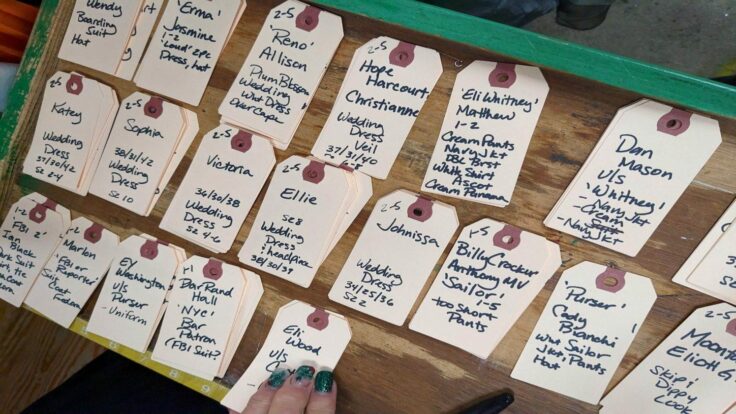 Wendy
Boarding
Suit
Hat
'Erma'
Jasmine
1-2
'Loud' 2pc
Dress, hat
2-5
'Reno'
Allison
Plum Blossom
Wedding
Wht Dress
2-5
Hope
Harcourt
Christianne
Wedding
Dress
Veil
37/31/40
'Eli Whitney'
Matthew
1-2
Cream Pants
Navy Jkt
DBL Brst
White Shirt
Ascot
Cream Panama
Dan
Mason
U/S
'Whitney'
-Navy Jkt
-Cream
-Navy Jkt
2-5
Katey
Wedding
Dress
37/30/42
SZ 2-4
2-5
Sophia
38/31/42
Wedding
Dress
SZ 10
2-5
Victoria
36/30/38
Wedding
Dress
SZ 4-6
Ellie
SZ 8
Wedding
Dress
+ headpiece
38/30/39
Johnissa
Wedding
Dress
34/25/36
SZ 2
2-5
Billy Crocker
Anthony MV
Sailor
1-5
too short
Pants
'Purser'
Cody
Bianchi
Wht Sailor
Jkt Pants
Hat
Moont
Eliott G
Skip/
Dippy
Look
1-2
'FBI 2'
Ian
Black
Suit
Marlon
FBI or
Reporter
Suit
Coat
Fedora
Ev
Washington
U/S
Purser
-Uniform
Dar Rand
Hall
'NYC'
Bar
Patron
(FBI Suit?)
Eli
Wood
U/S